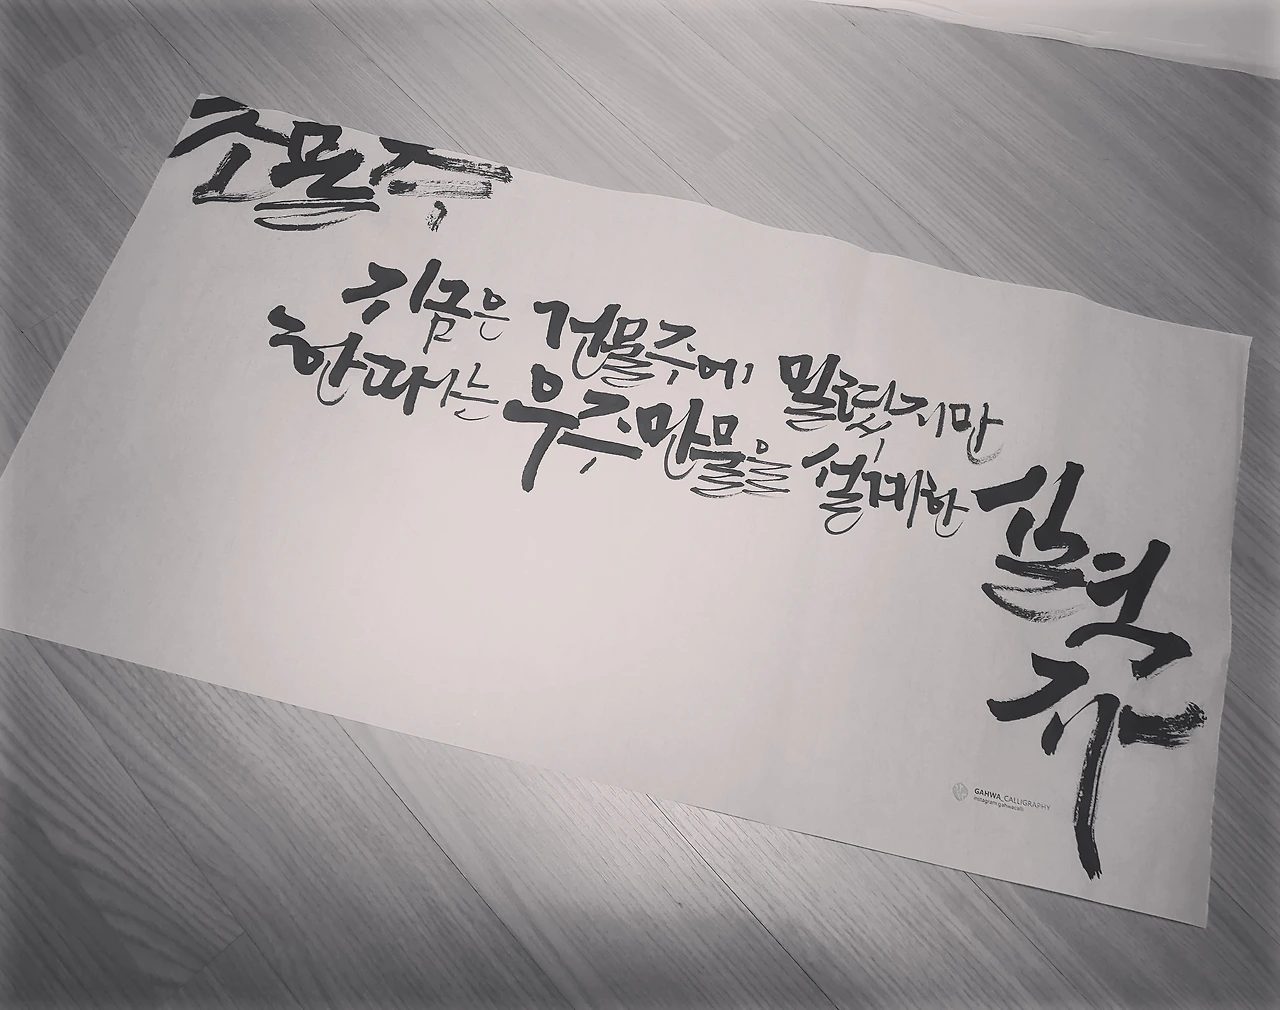 조물주
지금은 건물주에 밀렸지만
한때는 우주만물을 설계한
실력자
GAHWA_CALLIGRAPHY
instagram:gahwacalli